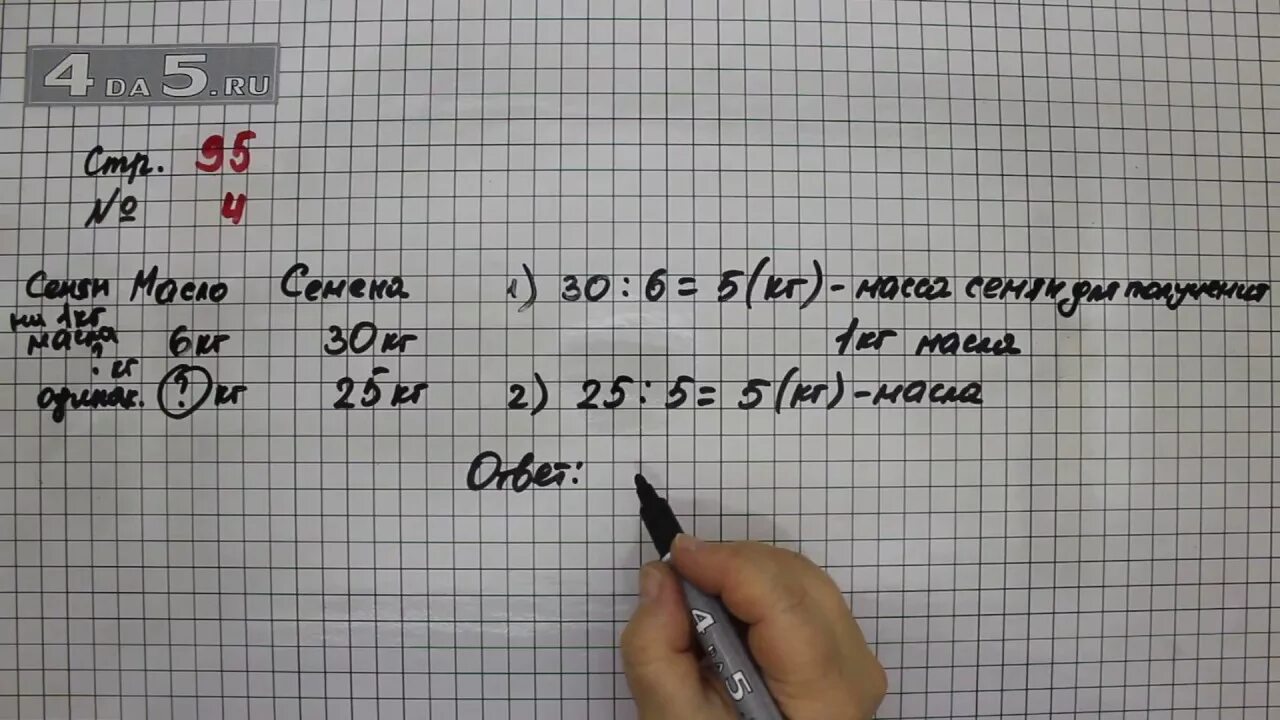 4DA5.RU
Стр. 95
№ 4
Семян Масло Семена
на 1кг
масла 6кг 30кг
? кг
одинак. ? кг 25кг
1) 30 : 6 = 5 (кг) - масса семян для получения
1кг масла
2) 25 : 5 = 5 (кг) - масла
Ответ:
4DA5